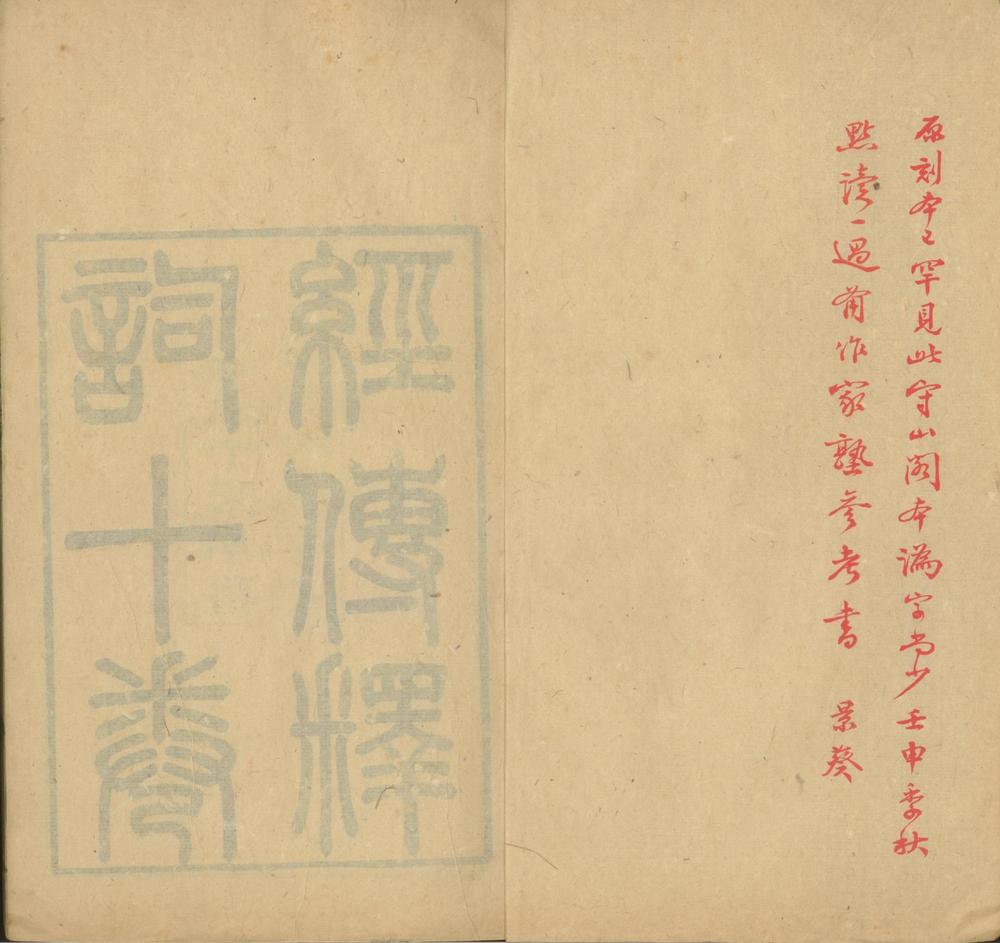 原刻本已罕見此守山閣本譌字尚少壬申季秋
點讀一過備作家塾參考書　景葵
經傳釋
詞十卷